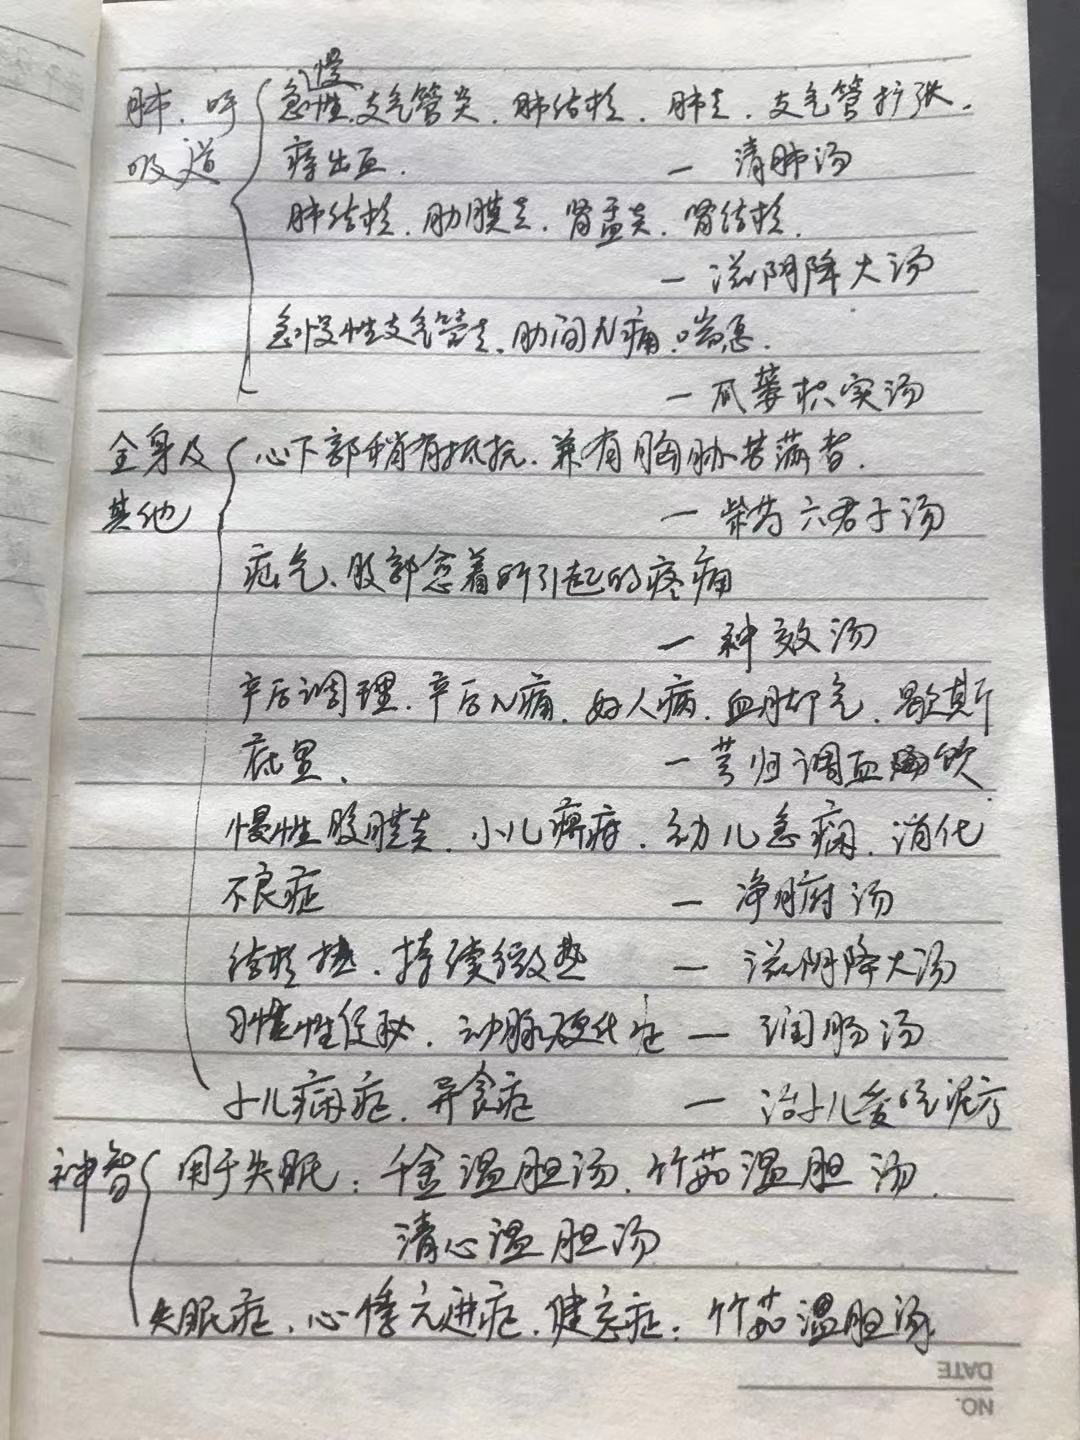 肺、呼 急慢性支气管炎、肺结核、肺炎、支气管扩张、
吸道 痔出血. — 清肺汤
肺结核、肋膜炎、肾盂炎、肾结核.
— 滋阴降火汤
急慢性支气管炎、肋间N痛、喘息.
— 瓜蒌枳实汤
全身及 心下部稍有抵抗、兼有胸胁苦满者.
其他 — 柴芍六君子汤
疝气、股部 所引起的疼痛
— 神效汤
产后调理、产后N痛、妇人病、血脚气、歇斯
底里、 — 芎归调血饮
慢性腹膜炎、小儿痞癖、幼儿急痫、消化
不良症 — 净府汤
结核热、持续微热 — 滋阴降火汤
习惯性便秘、动脉硬化症 — 润肠汤
小儿痫症、异食症 — 治小儿爱吃泥方
神智 用于失眠：千金温胆汤、竹茹温胆汤、
清心温胆汤
失眠症、心悸亢进症、健忘症：竹茹温胆汤
DATE
NO.